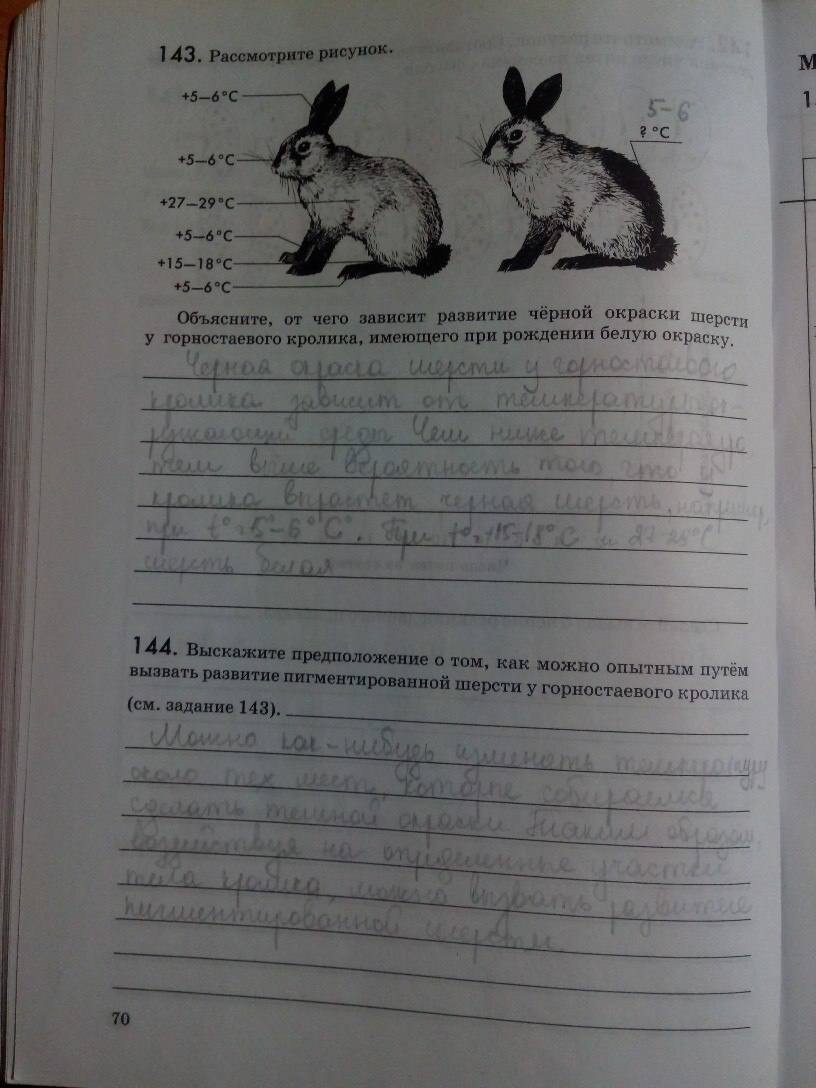 143. Рассмотрите рисунок.
+5–6°C
+5–6°C
+27–29°C
+5–6°C
+15–18°C
+5–6°C
5-6
? °C
Объясните, от чего зависит развитие чёрной окраски шерсти
у горностаевого кролика, имеющего при рождении белую окраску.
Черная окраска шерсти у горностаевого
кролика зависит от температуры ок-
ружающей среды Чем ниже температура
тем выше вероятность того, что у
кролика вырастет черная шерсть, например,
при t°=5°-6°C°. При t°=+15-18°C и 27
шерсть белая
144. Выскажите предположение о том, как можно опытным путём
вызвать развитие пигментированной шерсти у горностаевого кролика
(см. задание 143).
Можно как-нибудь изменять температуру
около тех мест, которые собираемся
сделать темной окраски Таким образом,
воздействуя на определенные участки
тела кролика, можно вызвать развитие
пигментированной шерсти.
70
М
1